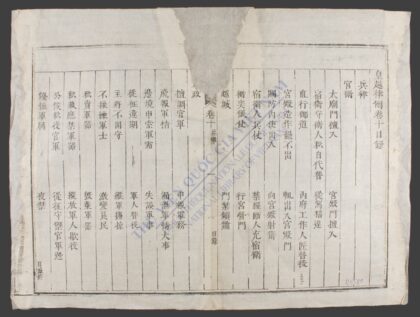 皇越律例卷十目錄
兵律
宮衛
太廟門擅入
宮殿門擅入
宿衛守衛人私自代替
從駕稽違
直行御道
內府工作人匠替役
宮殿造作罷不出
輒出入宮殿門
向宮殿射箭
宿衛人兵仗
禁經斷人充宿衛
衝突儀仗
行宮營門
越城
門禁鎖鑰
卷十
兵律
目錄
政
擅調官軍
申報軍務
飛報軍情
邊境申索軍需
失誤軍事
從征違期
軍人替役
主將不固守
縱軍擄掠
不操練軍士
激變良民
私賣軍器
毀棄軍器
私藏應禁軍器
縱放軍人歇役
公侯私役官軍
從征守禦官軍逃
優恤軍屬
夜禁